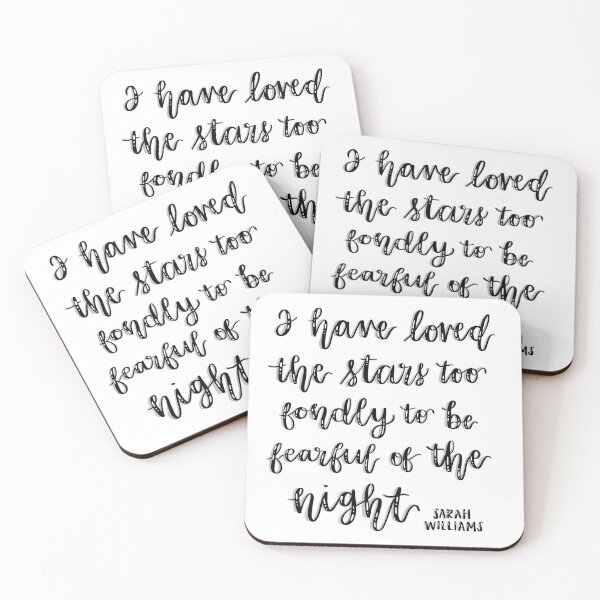 I have loved
the stars too
fondly to be
the
I have loved
the stars too
fondly to be
fearful of the
I have loved
the stars too
fondly to be
fearful of
night
I have loved
the stars too
fondly to be
fearful of the
night
SARAH
WILLIAMS